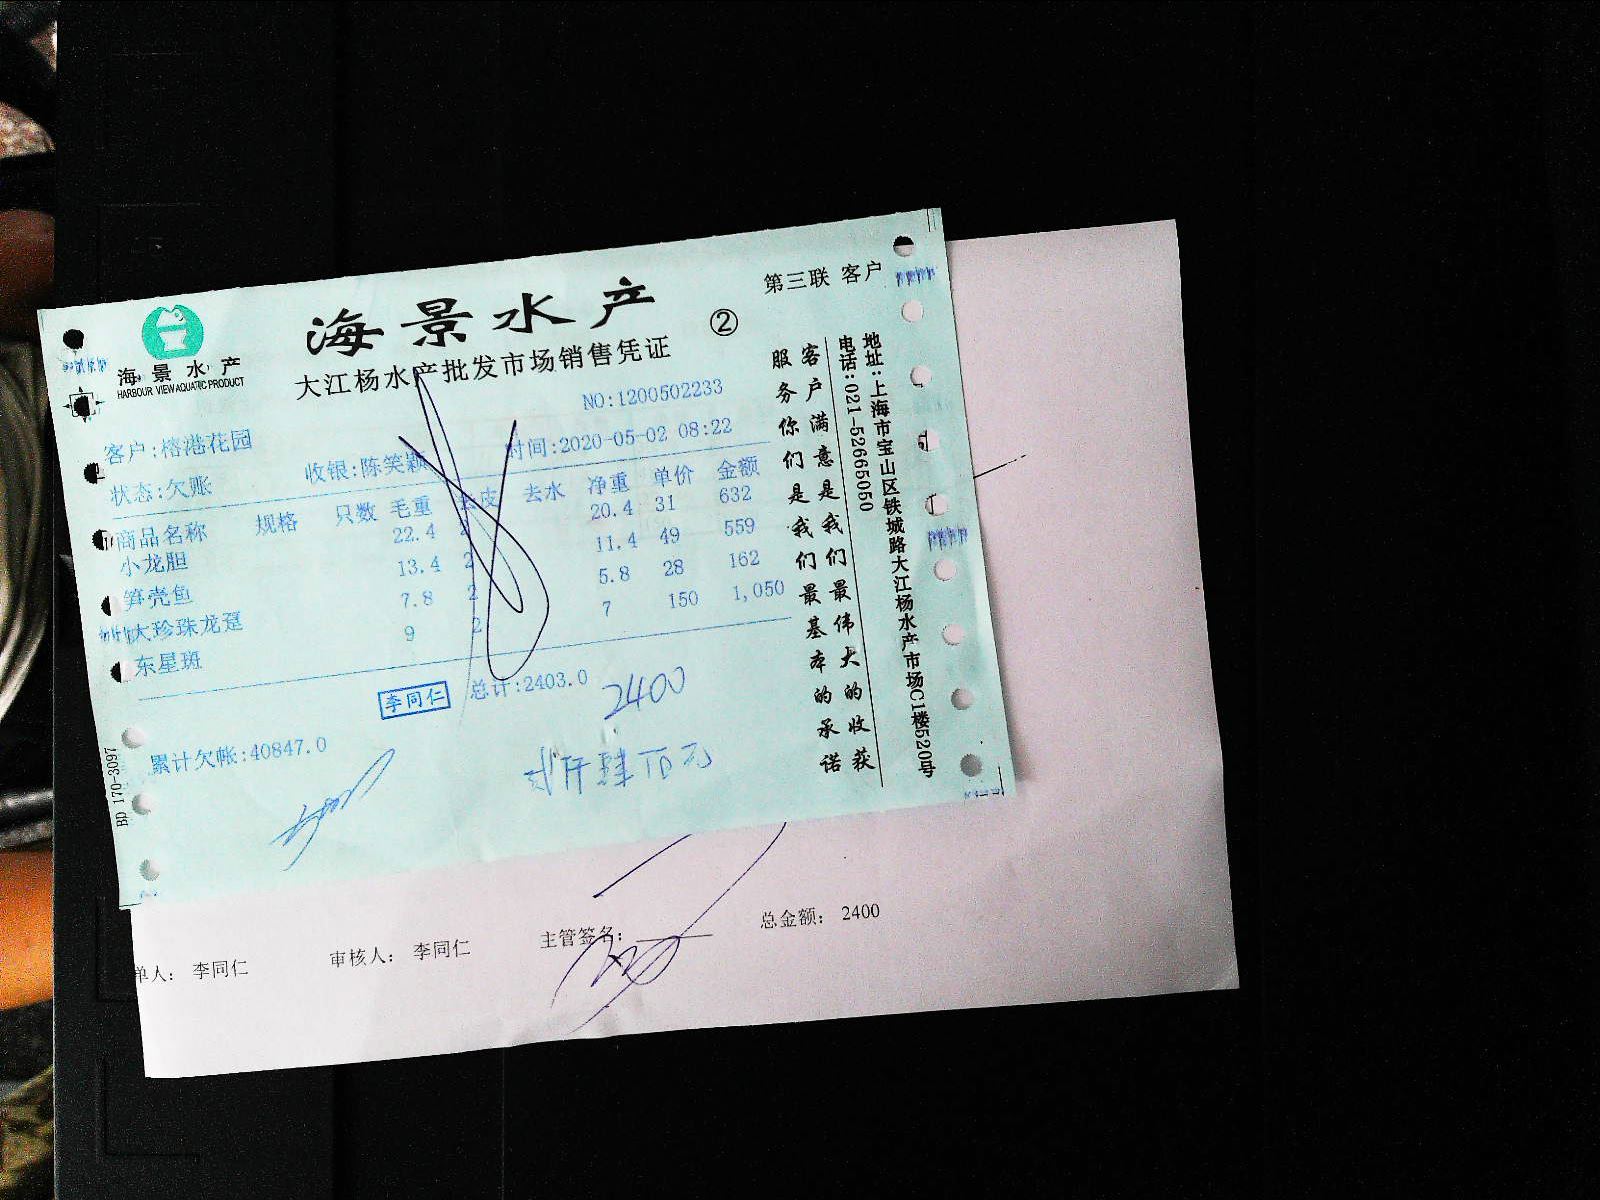 第三联 客户
海景水产
②
海景水产
HARBOUR VIEW AQUATIC PRODUCT
大江杨水产批发市场销售凭证
NO:1200502233
客户:榕港花园
时间:2020-05-02 08:22
状态:欠账 收银:陈笑颖
商品名称 规格 只数 毛重 去皮 去水 净重 单价 金额
小龙胆 22.4 2 20.4 31 632
笋壳鱼 13.4 2 11.4 49 559
大珍珠龙趸 7.8 2 5.8 28 162
东星斑 9 2 7 150 1,050
李同仁 总计:2403.0
2400
累计欠帐:40847.0
贰仟肆百元
BD 170-3097
客户满意是我们最伟大的收获
服务你们是我们最基本的承诺
地址:上海市宝山区铁城路大江杨水产市场C1楼520号
电话:021-52665050
单人: 李同仁 审核人: 李同仁 主管签名: 总金额: 2400